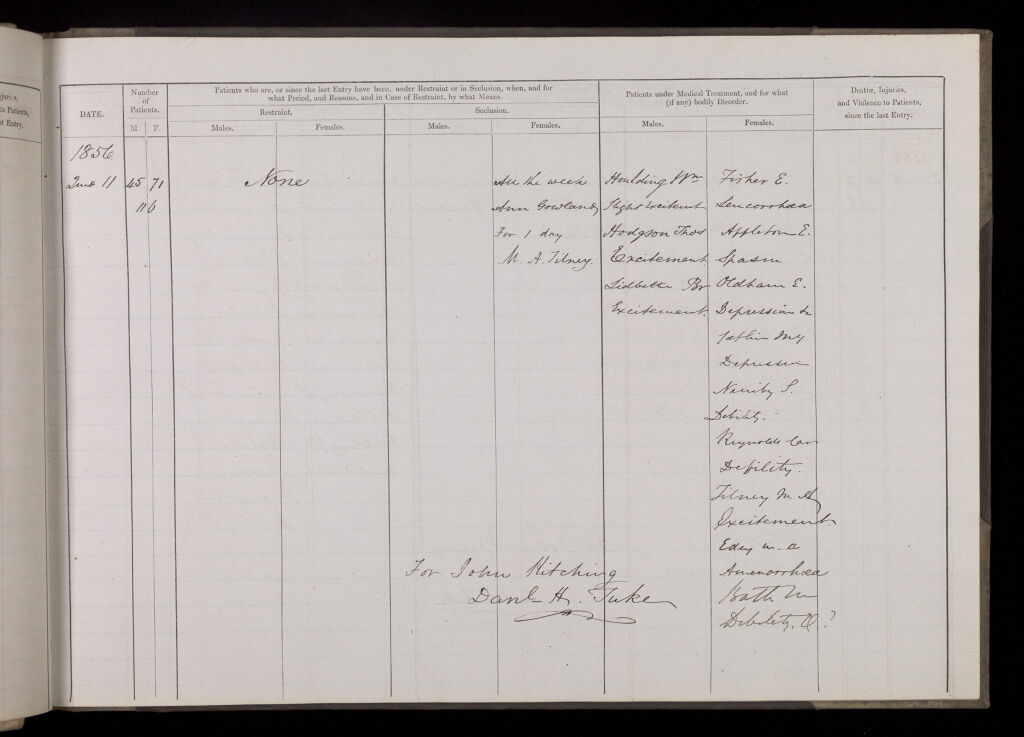 juries,
to Patients,
st Entry.
DATE.
Number
of
Patients.
M. F.
Patients who are, or since the last Entry have been, under Restraint or in Seclusion, when, and for
what Period, and Reasons, and in Case of Restraint, by what Means.
Restraint.
Seclusion.
Males.
Females.
Males.
Females.
Patients under Medical Treatment, and for what
(if any) bodily Disorder.
Males.
Females.
Deaths, Injuries,
and Violence to Patients,
since the last Entry.
1856
2mo 11
45 71
116
None
All the week
Ann Gowland
For 1 day
M. A. Tilney.
Houlding Wm
Slight Excitement
Hodgson Thos
Excitement
Lidbetter
Excitement.
Fisher E.
Leucorrhœa
Appleton E.
Spasm
Oldham E.
Depression &c
Depression
S.
Debility.
Reynolds Car
Debility.
Tilney M A
Excitement.
Edey M. A
Amenorrhœa
M
Debility. Q?
For John Kitching
Danl H. Tuke